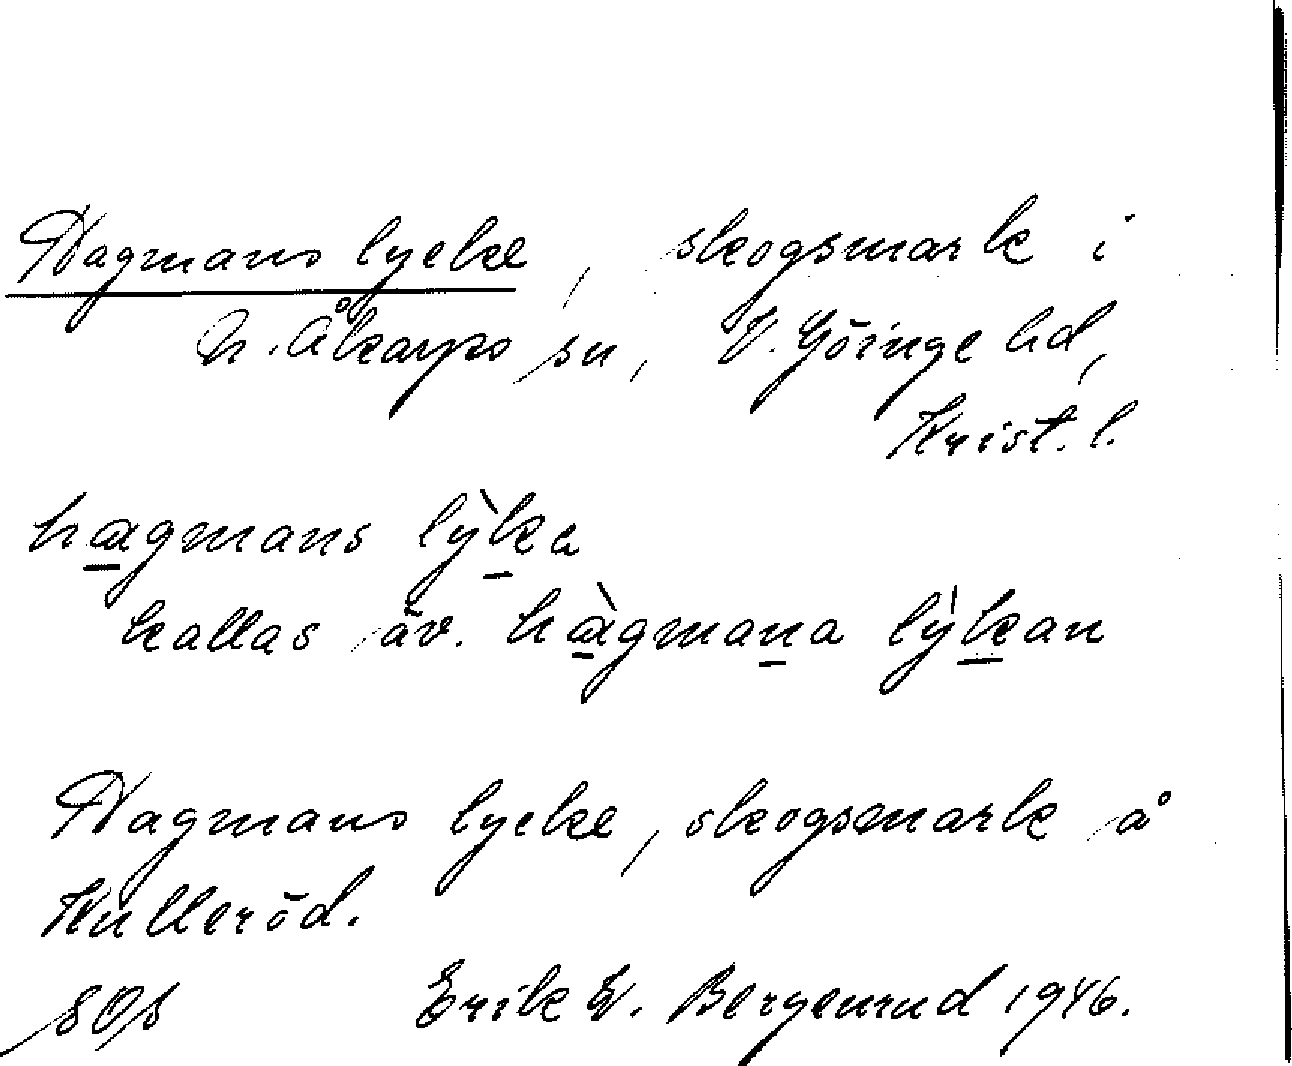 Hagmans lycke, skogsmark i
N. Åkarps sn, V. Göinge hd,
Krist. l.
hagmans lỳka
kallas äv. hàgmana lỳkan
Hagmans lycke, skogsmark å
Kulleröd.
Erik W. Bergenrud 1946.